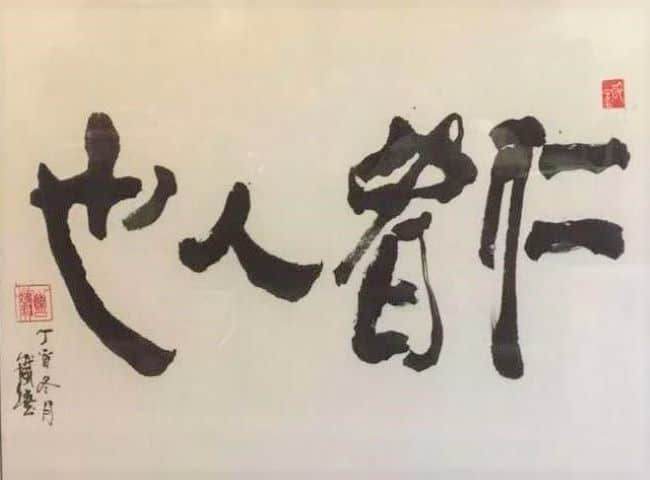 仁者人也
丁亥冬月